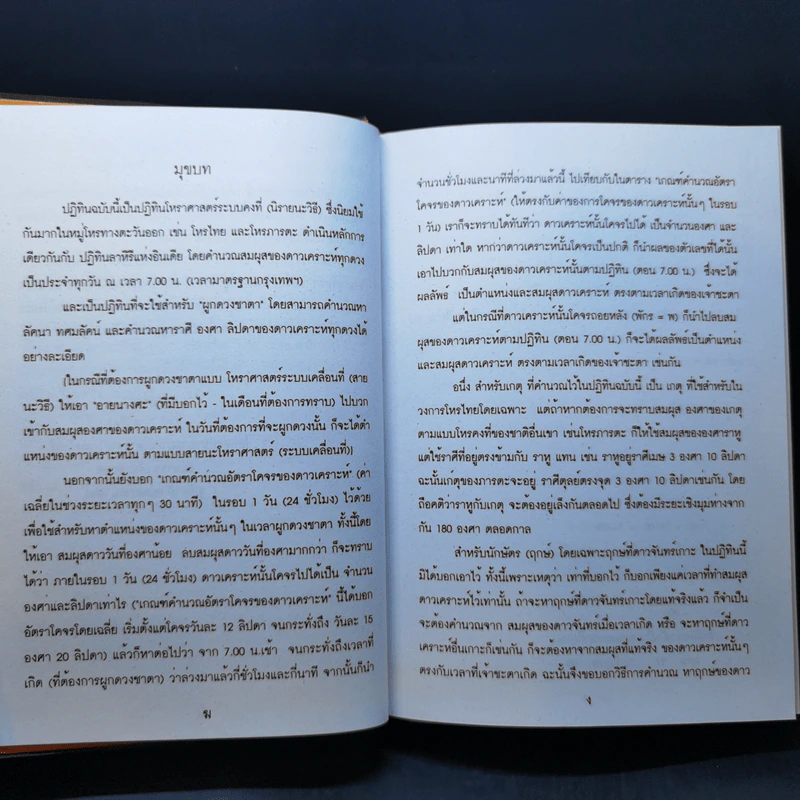 มุขบท
ปฏิทินฉบับนี้เป็นปฏิทินโหราศาสตร์ระบบคงที่ (นิรายนะวิธี) ซึ่งนิยมใช้
กันมากในหมู่โหรทางตะวันออก เช่น โหรไทย และโหรภารตะ ดำเนินหลักการ
เดียวกันกับ ปฏิทินลาหิรีแห่งอินเดีย โดยคำนวณสมผุสของดาวเคราะห์ทุกดวง
เป็นประจำทุกวัน ณ เวลา 7.00 น. (เวลามาตรฐานกรุงเทพฯ)
และเป็นปฏิทินที่จะใช้สำหรับ "ผูกดวงชาตา" โดยสามารถคำนวณหา
ลัคนา ทศมลัคน์ และคำนวณหาราศี องศา ลิปดาของดาวเคราะห์ทุกดวงได้
อย่างละเอียด
(ในกรณีที่ต้องการผูกดวงชาตาแบบ โหราศาสตร์ระบบเคลื่อนที่ (สาย
นะวิธี) ให้เอา "อายนางศะ" (ที่มีบอกไว้ - ในเดือนที่ต้องการทราบ) ไปบวก
เข้ากับสมผุสองศาของดาวเคราะห์ ในวันที่ต้องการที่จะผูกดวงนั้น ก็จะได้ตำ
แหน่งของดาวเคราะห์นั้น ตามแบบสายนะโหราศาสตร์ (ระบบเคลื่อนที่)
นอกจากนั้นยังบอก "เกณฑ์คำนวณอัตราโคจรของดาวเคราะห์" (ค่า
เฉลี่ยในช่วงระยะเวลาทุกๆ 30 นาที) ในรอบ 1 วัน (24 ชั่วโมง) ไว้ด้วย
เพื่อใช้สำหรับหาตำแหน่งของดาวเคราะห์นั้นๆ ในเวลาผูกดวงชาตา ทั้งนี้โดย
ให้เอา สมผุสดาววันที่องศาน้อย ลบสมผุสดาววันที่องศามากกว่า ก็จะทราบ
ได้ว่า ภายในรอบ 1 วัน (24 ชั่วโมง) ดาวเคราะห์นั้นโคจรไปได้เป็น จำนวน
องศาและลิปดาเท่าไร ("เกณฑ์คำนวณอัตราโคจรของดาวเคราะห์" นี้ได้บอก
อัตราโคจรโดยเฉลี่ย เริ่มตั้งแต่โคจรวันละ 12 ลิปดา จนกระทั่งถึง วันละ 15
องศา 20 ลิปดา) แล้วก็หาต่อไปว่า จาก 7.00 น.เช้า จนกระทั่งถึงเวลาที่
เกิด (ที่ต้องการผูกดวงชาตา) ว่าล่วงมาแล้วกี่ชั่วโมงและกี่นาที จากนั้นก็นำ
ฆ
จำนวนชั่วโมงและนาทีที่ล่วงมาแล้วนี้ ไปเทียบกับในตาราง "เกณฑ์คำนวณอัตรา
โคจรของดาวเคราะห์" (ให้ตรงกับค่าของการโคจรของดาวเคราะห์นั้นๆ ในรอบ
1 วัน) เราก็จะทราบได้ทันทีว่า ดาวเคราะห์นั้นโคจรไปได้ เป็นจำนวนองศา และ
ลิปดา เท่าใด หากว่าดาวเคราะห์นั้นโคจรเป็นปกติ ก็นำผลของตัวเลขที่ได้นั้น
เอาไปบวกกับสมผุสดาวเคราะห์นั้นตามปฏิทิน (ตอน 7.00 น.) ซึ่งจะได้
ผลลัพธ์ เป็นตำแหน่งและสมผุสดาวเคราะห์ ตรงตามเวลาเกิดของเจ้าชะตา
แต่ในกรณีที่ดาวเคราะห์นั้นโคจรถอยหลัง (พักร = พ) ก็นำไปลบสม
ผุสของดาวเคราะห์ตามปฏิทิน (ตอน 7.00 น.) ก็จะได้ผลลัพธ์เป็นตำแหน่ง
และสมผุสดาวเคราะห์ ตรงตามเวลาเกิดของเจ้าชะตา เช่นกัน
อนึ่ง สำหรับเกตุ ที่คำนวณไว้ในปฏิทินฉบับนี้ เป็น เกตุ ที่ใช้สำหรับใน
วงการโหรไทยโดยเฉพาะ แต่ถ้าหากต้องการจะทราบสมผุส องศาของเกตุ
ตามแบบโหรคงที่ของชาติอื่นเขา เช่นโหรภารตะ ก็ให้ใช้สมผุสขององศาราหู
แต่ใช้ราศีที่อยู่ตรงข้ามกับ ราหู แทน เช่น ราหูอยู่ราศีเมษ 3 องศา 10 ลิปดา
ฉะนั้นเกตุของภารตะจะอยู่ ราศีตุลย์ตรงจุด 3 องศา 10 ลิปดาเช่นกัน โดย
ถือคติว่าราหูกับเกตุ จะต้องอยู่เล็งกันตลอดไป ซึ่งต้องมีระยะเชิงมุมห่างจาก
กัน 180 องศา ตลอดกาล
สำหรับนักษัตร (ฤกษ์) โดยเฉพาะฤกษ์ที่ดาวจันทร์เกาะ ในปฏิทินนี้
มิได้บอกเอาไว้ ทั้งนี้เพราะเหตุว่า เท่าที่บอกไว้ ก็บอกเพียงแค่เวลาที่ทำสมผุส
ดาวเคราะห์ไว้เท่านั้น ถ้าจะหาฤกษ์ที่ดาวจันทร์เกาะโดยแท้จริงแล้ว ก็จำเป็น
จะต้องคำนวณจาก สมผุสของดาวจันทร์เมื่อเวลาเกิด หรือ จะหาฤกษ์ที่ดาว
เคราะห์อื่นเกาะก็เช่นกัน ก็จะต้องหาจากสมผุสที่แท้จริง ของดาวเคราะห์นั้นๆ
ตรงกับเวลาที่เจ้าชะตาเกิด ฉะนั้นจึงขอบอกวิธีการคำนวณ หาฤกษ์ของดาว
ง